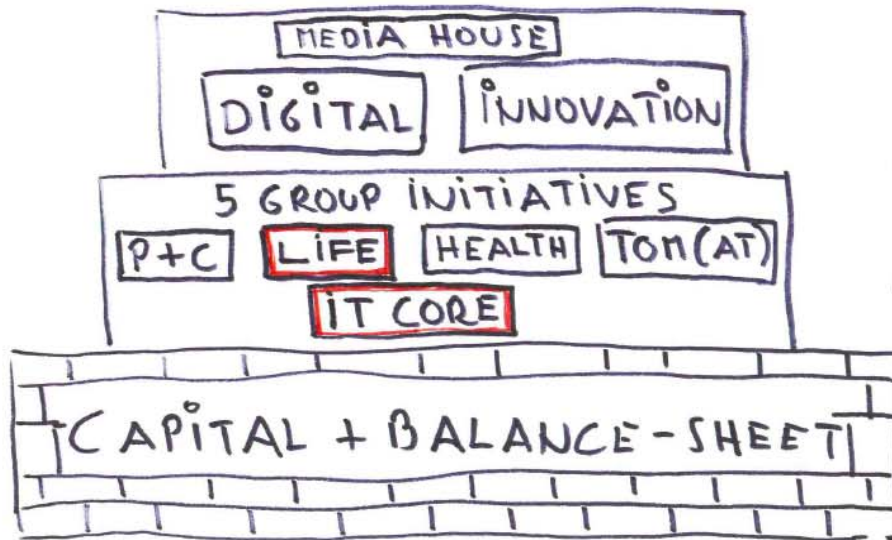 MEDiA HOUSE
DiGiTAL iNNOVATiON
5 GROUP iNiTiATiVES
P+C LiFE HEALTH TOM(AT)
iT CORE
CAPiTAL + BALANCE-SHEET